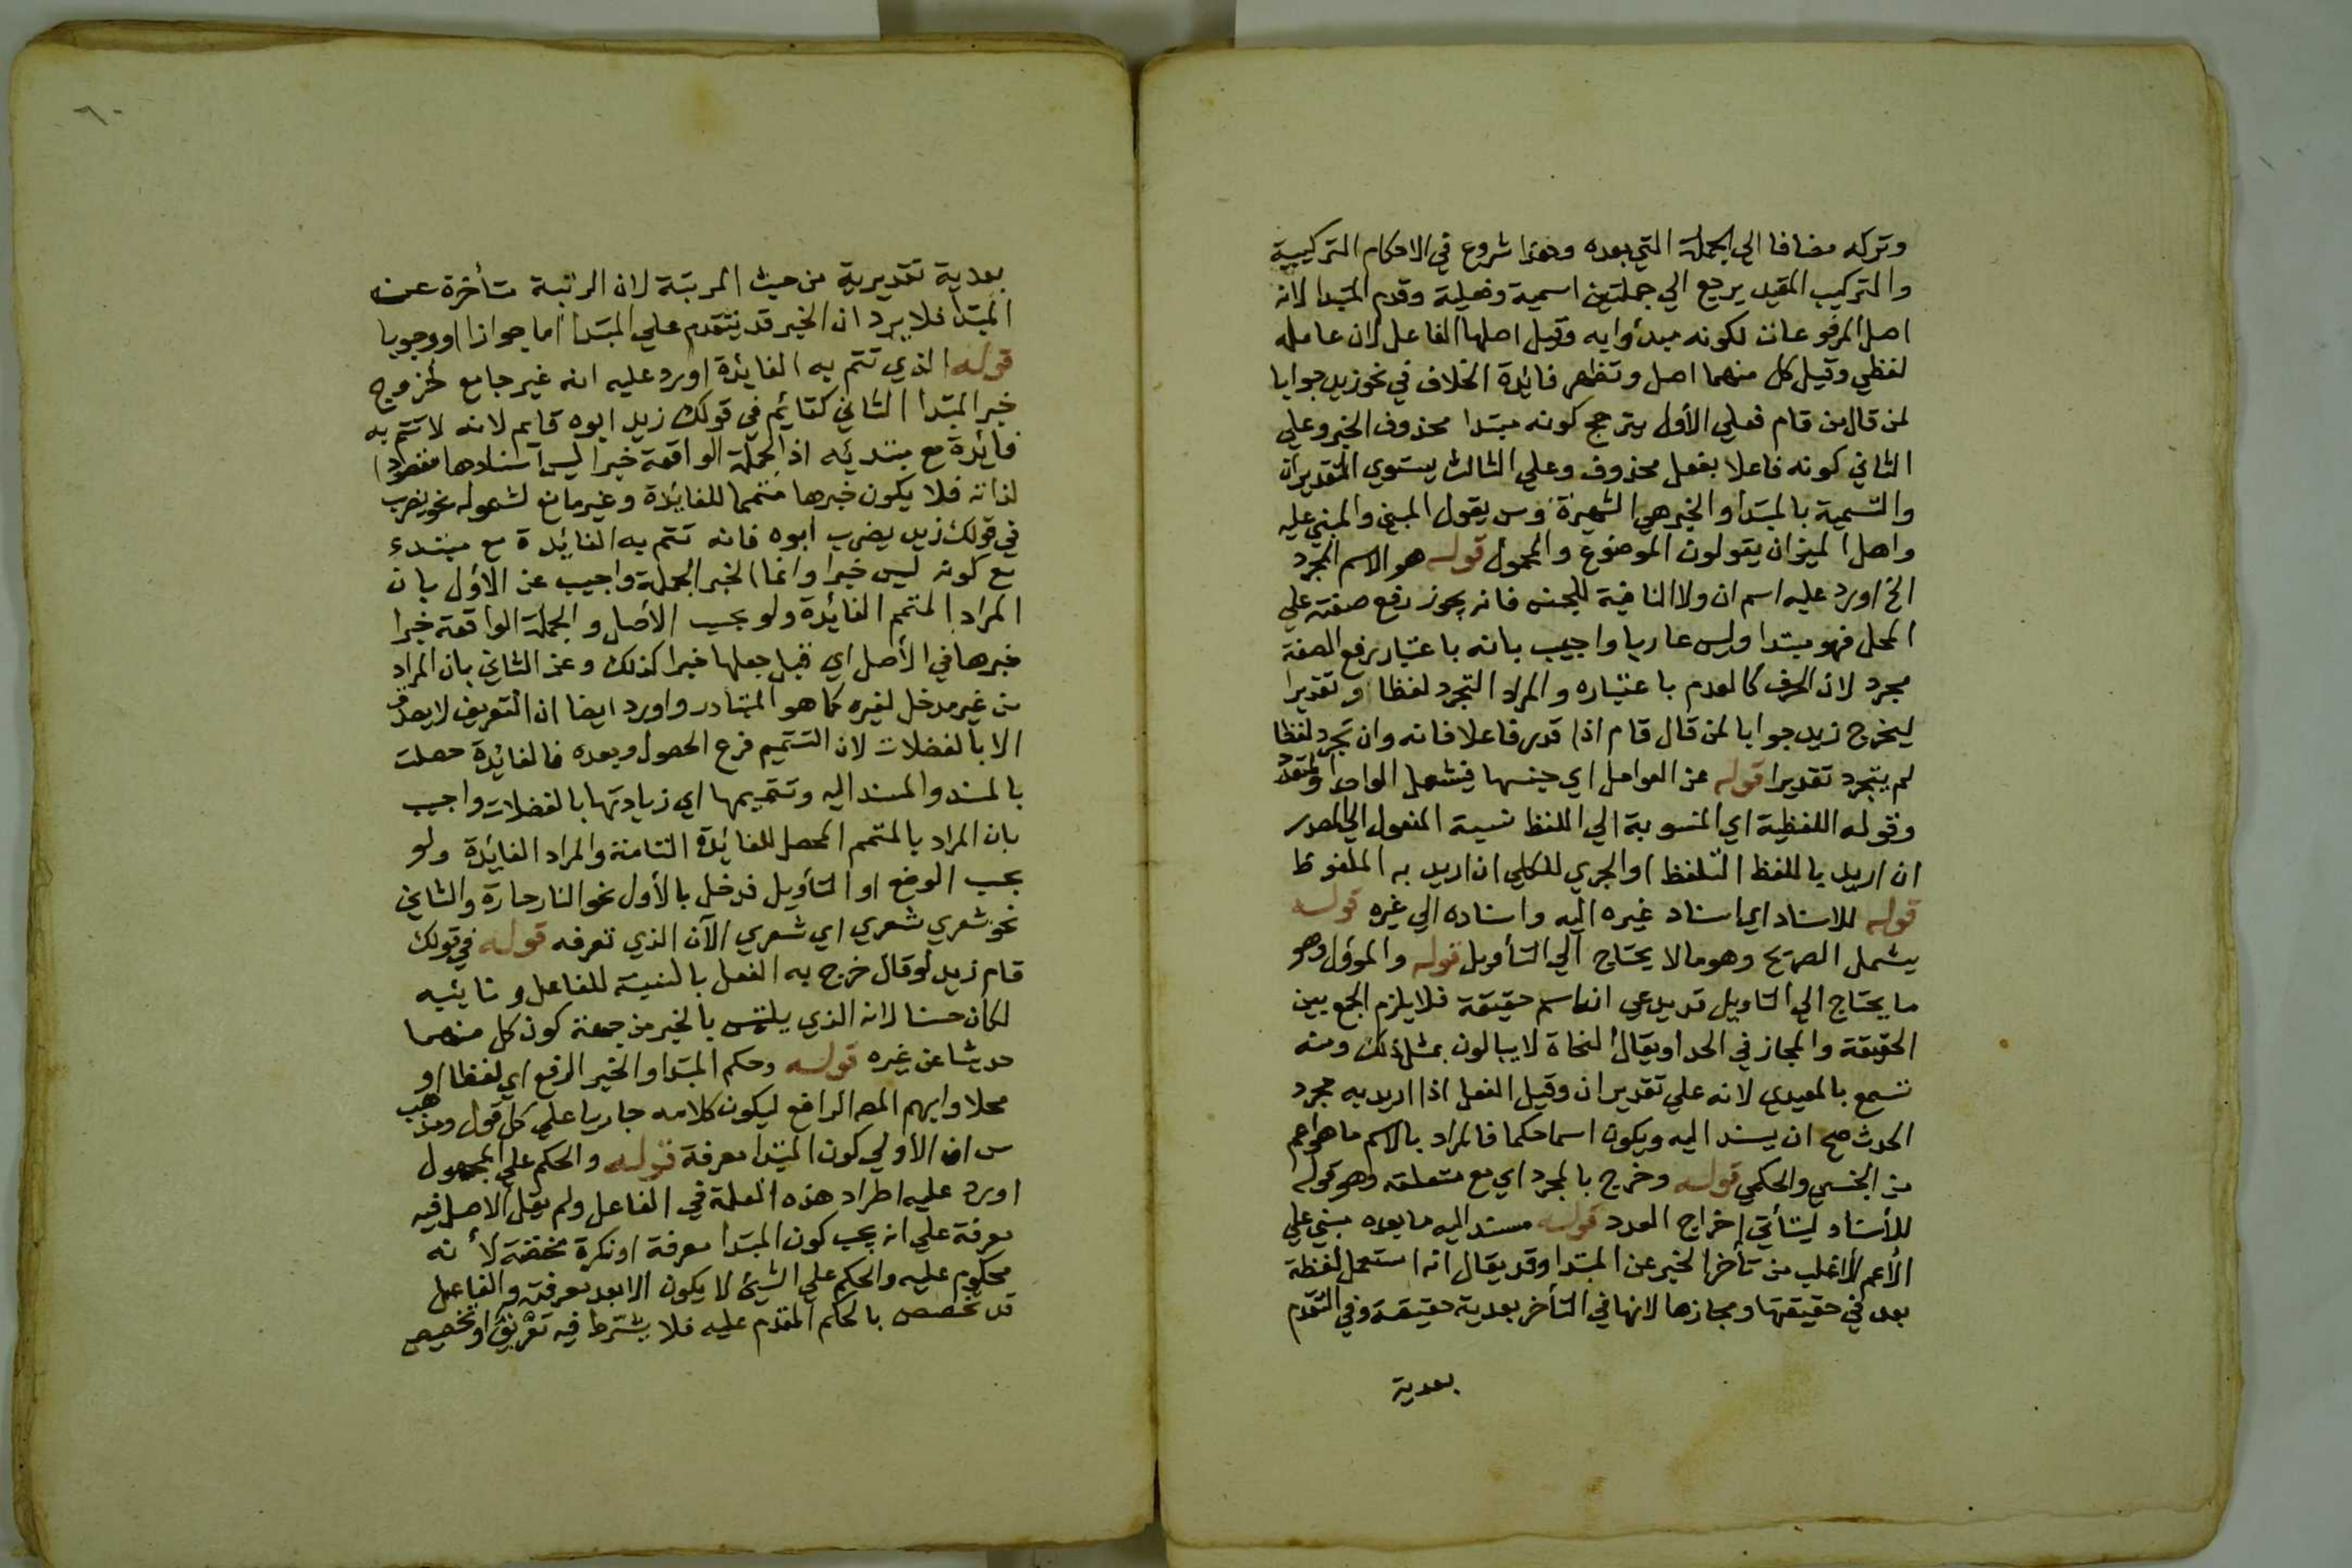 وتركه مضافا الي الجملة التي بعده وهذا شروع في الاحكام التركيبية
والتركيب المقيد يرجع الي جملتين اسمية وفعلية وقدم المبتدا لانه
اصل المرفوعات لكونه مبدؤا به وقيل اصلها الفاعل لان عامله
لفظي وقيل كل منهما اصل وتظهر فائدة الخلاف في نحو زيد جوابا
لمن قال من قام فعلي الأول يترجح كونه مبتدا محذوف الخبر وعلي
الثاني كونه فاعلا بفعل محذوف وعلي الثالث يستوي التقديران
والتسمية بالمبتدا والخبر هي الشهيرة وس يقول المبني والمبني عليه
واهل الميزان يقولون الموضوع والمحمول قوله هو الاسم المجرد
الخ اورد عليه اسم ان ولا النافية للجنس فانه يجوز رفع صفته علي
المحل فهو مبتدا وليس عاريا واجيب بانه باعتبار رفع الصفة
مجرد لان الحرف كالعدم باعتباره والمراد التجرد لفظا او تقديرا
ليخرج زيد جوابا لمن قال قام اذا قدر فاعلا فانه وان تجرد لفظا
لم يتجرد تقديرا قوله عن العوامل اي جنسها فيشمل الواحد والمتعدد
وقوله اللفظية اي المنسوبة الي اللفظ نسبة المفعول الي المصدر
ان اريد باللفظ التلفظ او الجزي للكلي ان اريد به الملفوظ
قوله للاسناد اي اسناد غيره اليه واسناده الي غيره قوله
يشمل الصريح وهو مالا يحتاج الي التأويل قوله والمؤول وهو
ما يحتاج الي التاويل قد يدعي انه اسم حقيقة فلا يلزم الجمع بين
الحقيقة والمجاز في الحد او يقال النحاة لا يبالون بمثل ذلك ومنه
تسمع بالمعيدي لانه علي تقدير ان وقيل الفعل اذا اريد به مجرد
الحدث صح ان يسند اليه ويكون اسما حكما فالمراد بالاسم ما هو اعم
من الحقيقي والحكمي قوله وخرج بالمجرد اي مع متعلقه وهو قوله
للأسناد ليتأتي إخراج العدد قوله مسند اليه ما بعده مبني علي
الأعم الأغلب من تأخر الخبر عن المبتدا وقد يقال انه استعمل لفظة
بعد في حقيقتها ومجازها لانها في التأخر بعدية حقيقة وفي التقدم
بعدية
٦٠
بعدية تقديرية من حيث المرتبة لان الرتبة متأخرة عن
المبتدا فلا يرد ان الخبر قد يتقدم علي المبتدا اما جوازا او وجوبا
قوله الذي تتم به الفائدة اورد عليه انه غير جامع لخروج
خبر المبتدا الثاني كقائم في قولك زيد ابوه قايم لانه لا تتم به
فائدة مع مبتدئه اذ الجملة الواقعة خبرا ليس اسنادها مقصودا
لذاته فلا يكون خبرها متمما للفائدة وغير مانع لشموله نحو يضرب
في قولك زيد يضرب ابوه فانه تتم به الفائدة مع مبتدء
مع كونه ليس خبرا وانما الخبر الجملة واجيب عن الاول بان
المراد المتمم الفائدة ولو بحسب الأصل والجملة الواقعة خبرا
خبرها في الأصل اي قبل جعلها خبرا كذلك وعن الثاني بان المراد
من غير مدخل لغيره كما هو المتبادر واورد ايضا ان التعريف لا يصدق
الا بالفضلات لان التتميم فرع الحصول وبعده فالفائدة حصلت
بالمسند والمسند اليه وتتميمها اي زيادتها بالفضلات واجيب
بان المراد بالمتمم المحصل للفائدة التامة والمراد الفايدة ولو
بحسب الوضع او التأويل فدخل بالأول نحو النار حارة والثاني
نحو شعري شعري اي شعري الآن الذي تعرفه قوله في قولك
قام زيد لو قال خرج به الفعل بالنسبة للفاعل ونائبه
لكان حسنا لانه الذي يلتبس بالخبر من جهة كون كل منهما
حديثا عن غيره قوله وحكم المبتدا والخبر الرفع اي لفظا او
محلا وابهم المص الرافع ليكون كلامه جاريا علي كل قول ومذهب
س ان الأولي كون المبتدا معرفة قوله والحكم علي المجهول
اورد عليه اطراد هذه العلة في الفاعل ولم يقل الاصل فيه
معرفة علي انه يجب كون المبتدا معرفة او نكرة مخصصة لأنه
محكوم عليه والحكم علي الشيئ لا يكون الا بعد معرفته والفاعل
قد تخصص بالحكم المقدم عليه فلا يشترط فيه تعريف او تخصيص